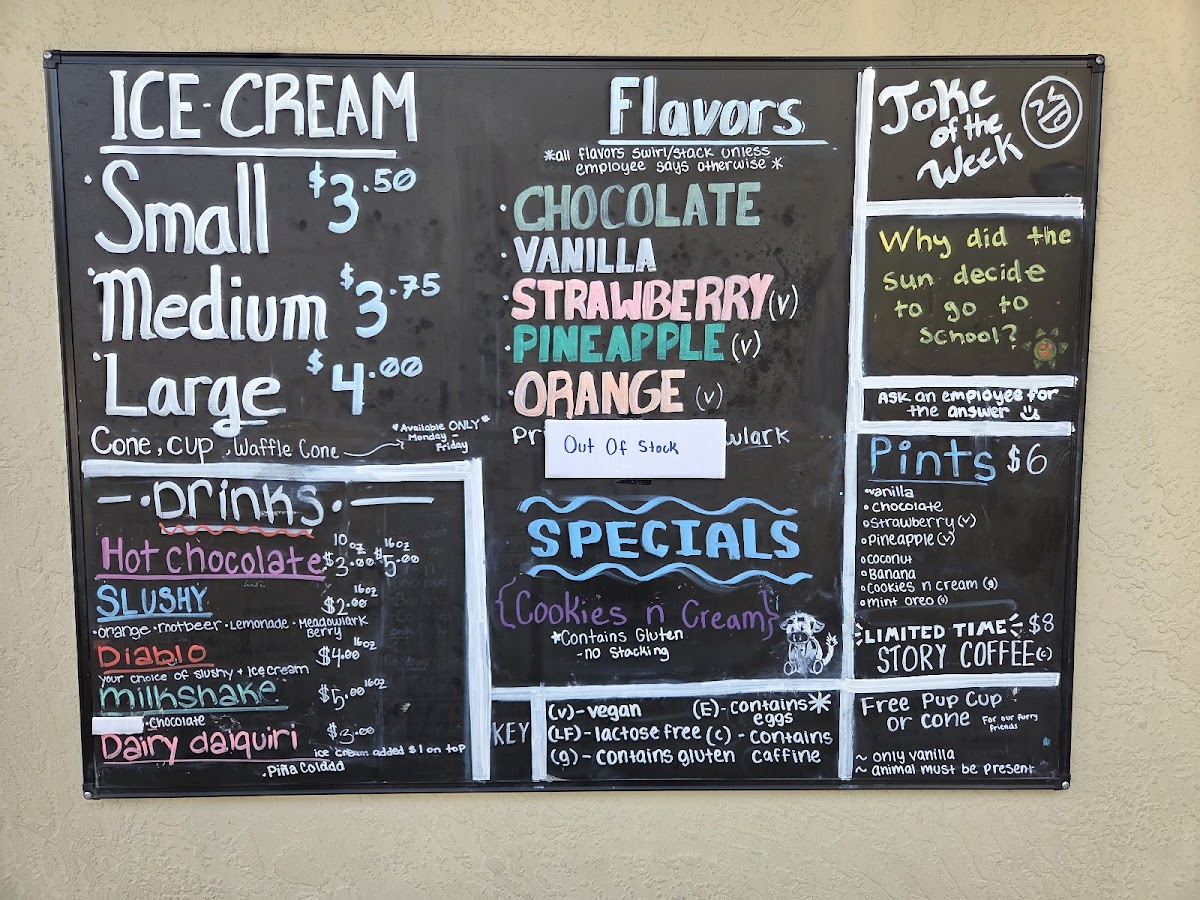 ICE-CREAM
• Small $3.50
• Medium $3.75
• Large $4.00
Cone, cup, Waffle Cone
*Available ONLY*
Monday -
Friday
Drinks
10oz 16oz
Hot chocolate $3.00 $5.00
SLUSHY $2.00 16oz
• orange • rootbeer • Lemonade • Meadowlark
Berry
Diablo $4.00 16oz
your choice of slushy + ice cream
milkshake $5.00 16oz
• Chocolate
Dairy daiquiri $3.00
ice cream added $1 on top
• Piña Colada
Flavors
*all flavors swirl/stack unless
employee says otherwise *
• CHOCOLATE
• VANILLA
• STRAWBERRY (v)
• PINEAPPLE (v)
• ORANGE (v)
Out Of Stock
SPECIALS
{Cookies n Cream}
*Contains Gluten
- no Stacking
KEY
(v) - vegan (E) - contains*
eggs
(LF) - lactose free (c) - contains
(g) - contains gluten caffine
Joke
of the
Week
Why did the
sun decide
to go to
School?
Ask an employee for
the answer
Pints $6
• vanilla
• chocolate
• strawberry (v)
• pineapple (v)
• coconut
• Banana
• cookies n cream (g)
• mint oreo
LIMITED TIME $8
STORY COFFEE (c)
Free Pup Cup
or cone For our furry
friends
~ only vanilla
~ animal must be present